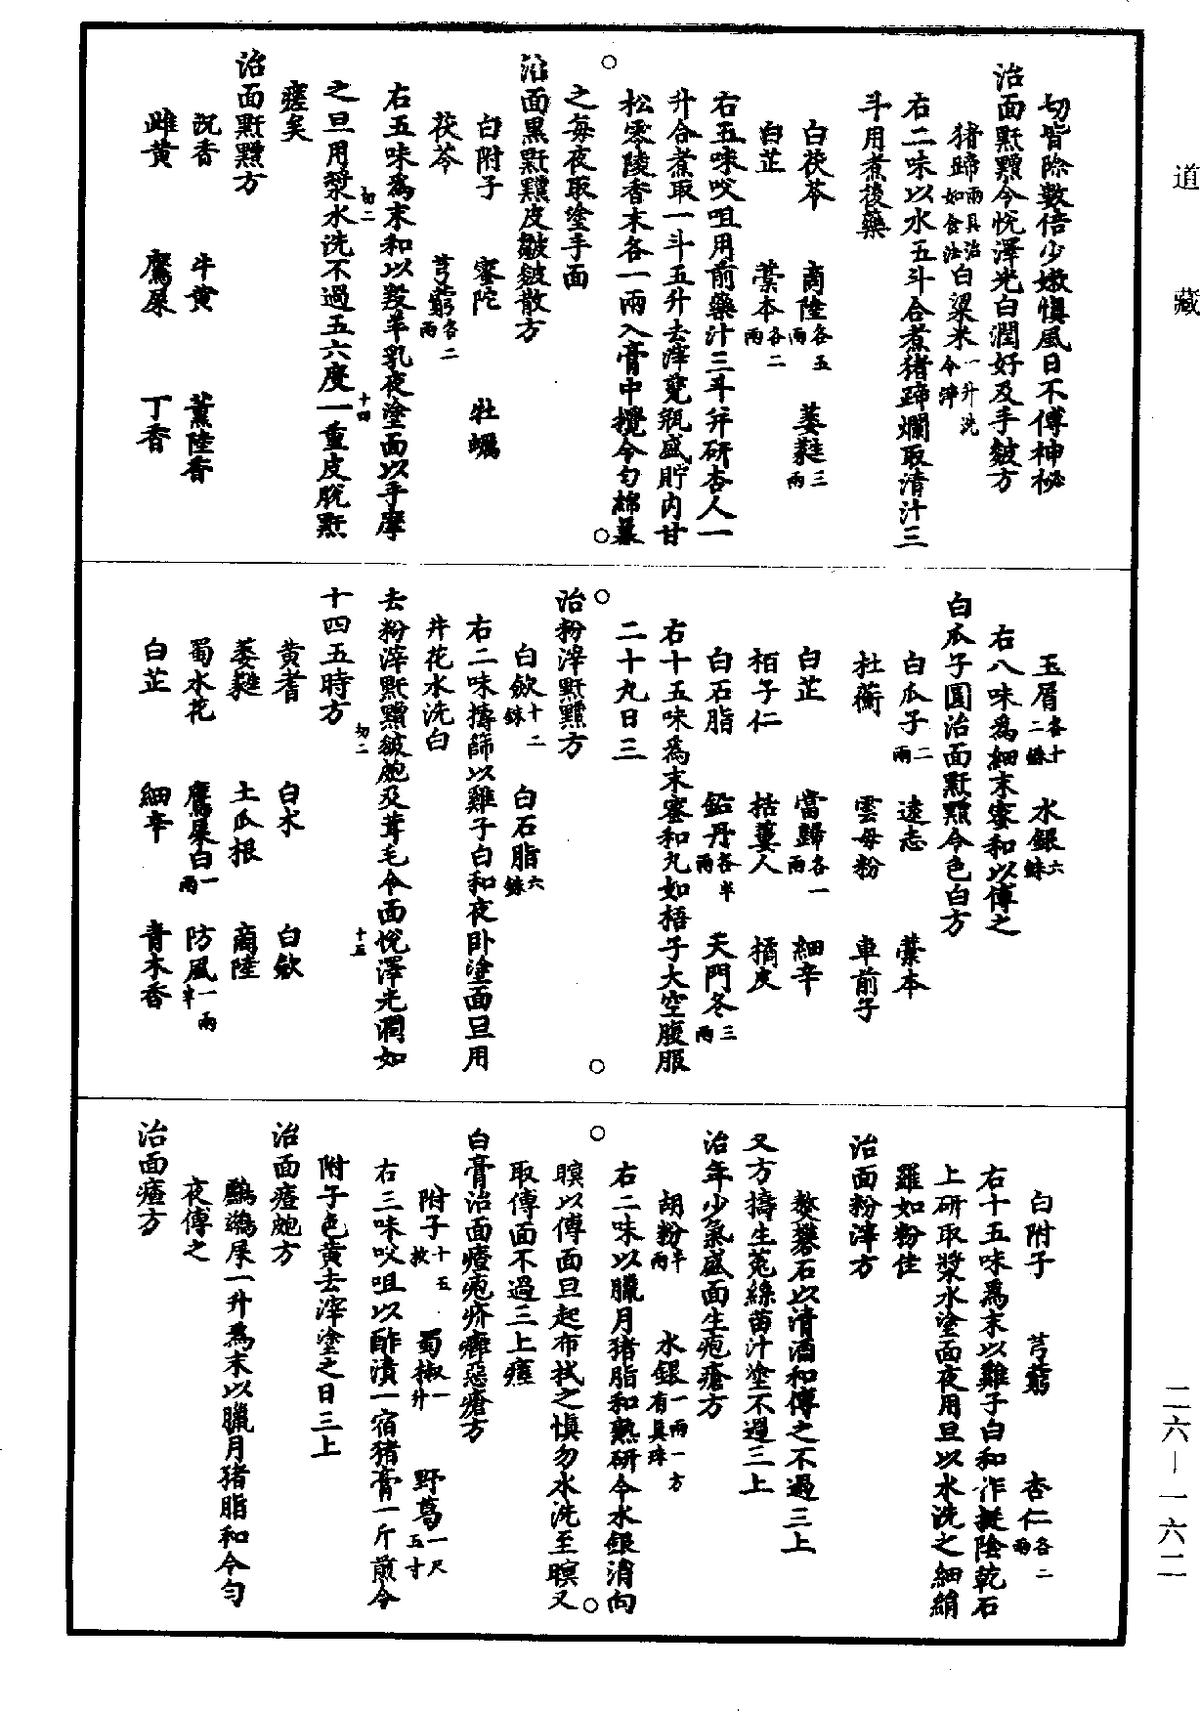 道藏
切皆除數倍少嫩愼風日不傳神秘
治面䵟䵳令悅澤光白潤好及手皴方
猪蹄兩具治如食法 白粱米一升洗令淨
右二味以水五斗合煮猪蹄爛取清汁三
斗用煮後藥
白茯苓 商陸各五兩 萎蕤三兩
白芷 藁本各二兩
右五味㕮咀用前藥汁三斗并研杏人一
升合煮取一斗五升去滓甆瓶盛貯內甘
松零陵香末各一兩入膏中攪令勻綿羃
之每夜取塗手面
治面黑䵟䵳皮皺皴散方
白附子 蜜陀 牡蠣
茯苓 芎藭各二兩
右五味爲末和以羖羊乳夜塗面以手摩
初二 十四
之旦用漿水洗不過五六度一重皮脫䵟
瘥矣
治面䵟䵳方
沉香 牛黃 薰陸香
雌黃 鷹屎 丁香
玉屑各十二銖 水銀六銖
右八味爲細末蜜和以傅之
白瓜子圓治面䵟䵳令色白方
白瓜子二兩 遠志 藁本
杜蘅 雲母粉 車前子
白芷 當歸各一兩 細辛
栢子仁 括蔞人 橘皮
白石脂 鉛丹各半兩 天門冬三兩
右十五味爲末蜜和丸如梧子大空腹服
二十丸日三
治粉滓䵟䵳方
白斂十二銖 白石脂六銖
右二味擣篩以雞子白和夜卧塗面旦用
井花水洗白
去粉滓䵟䵳皴皰及茸毛令面悅澤光潤如
初二 十五
十四五時方
黃耆 白朮 白斂
萎蕤 土瓜根 商陸
蜀水花 鷹屎白一兩 防風一兩半
白芷 細辛 青木香
白附子 芎藭 杏仁各二兩
右十五味爲末以雞子白和作挺陰乾石
上研取漿水塗面夜用旦以水洗之細絹
羅如粉佳
治面粉滓方
熬礬石以清酒和傅之不過三上
又方擣生菟絲苗汁塗不過三上
治年少氣盛面生皰瘡方
胡粉半兩 水銀一兩一方有真珠
右二味以臘月猪脂和熟研令水銀消向
瞑以傅面旦起布拭之愼勿水洗至瞑又
取傅面不過三上瘥
白膏治面䶥皰疥癬惡瘡方
附子十五枚 蜀椒一升 野葛一尺五寸
右三味㕮咀以酢漬一宿猪膏一斤煎令
附子色黃去滓塗之日三上
治面䶥皰方
鸕鷀屎一升爲末以臘月猪脂和令勻
夜傅之
治面䶥方
二六一一六二